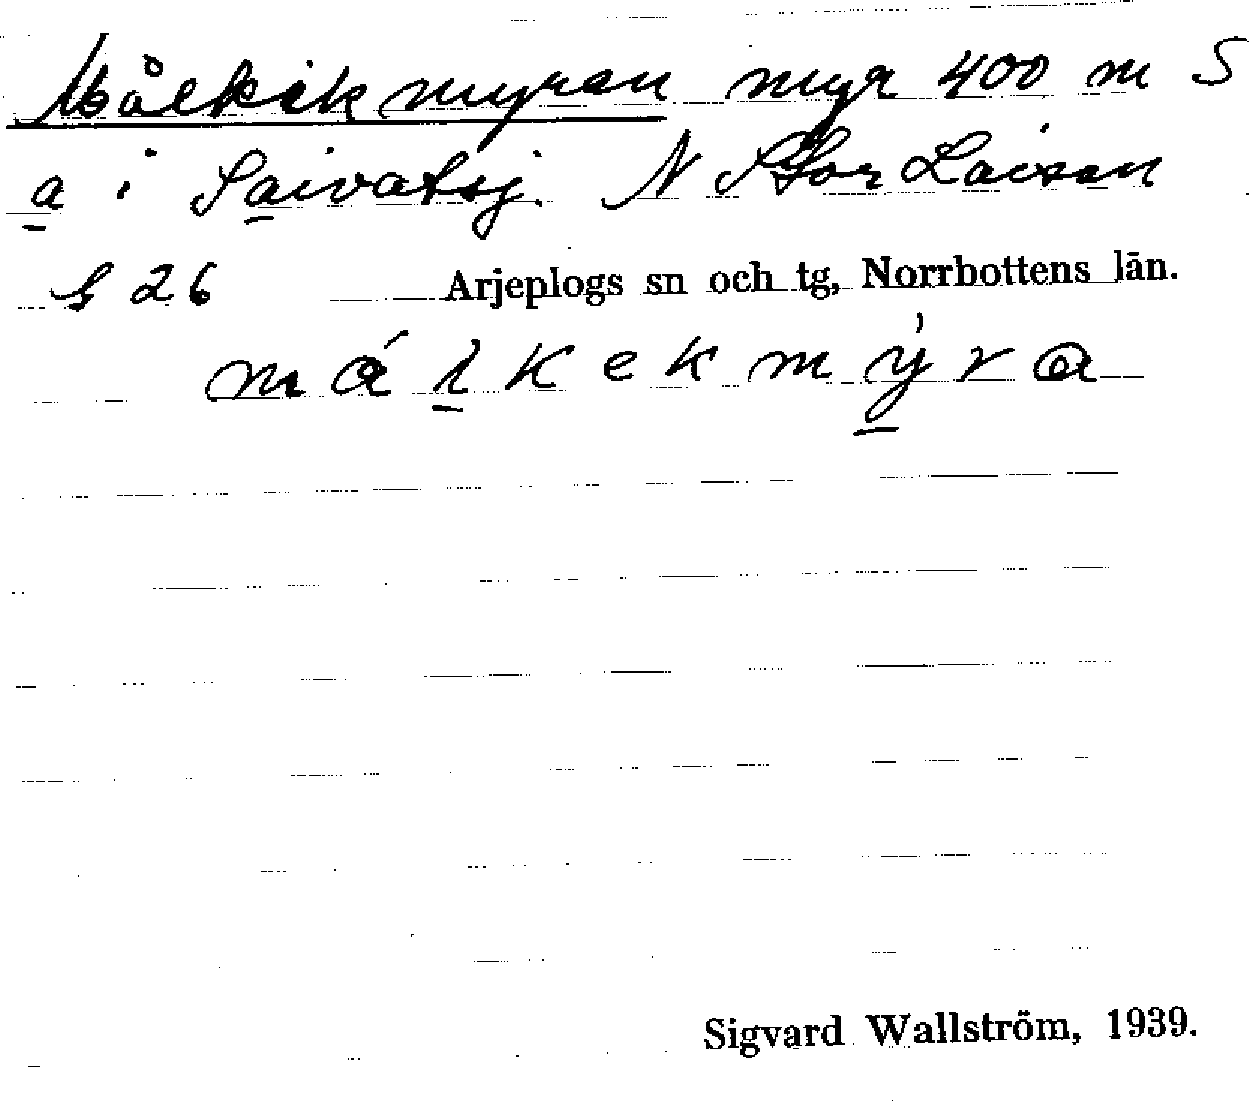 Målkekmyran myr 400 m S
a i Saivatsj. N Stor Laisan
§ 26 Arjeplogs sn och tg, Norrbottens län.
málkekmýra
Sigvard Wallström, 1939.